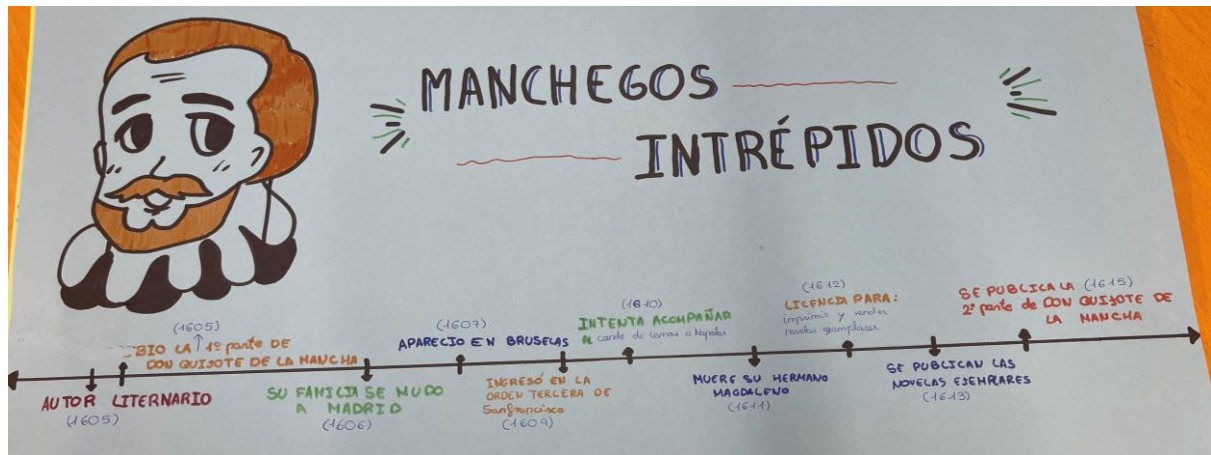 MANCHEGOS
INTRÉPIDOS
(1605)
BIO LA 1º parte DE
DON QUIJOTE DE LA MANCHA
AUTOR LITERNARIO
(1605)
SU FAMILIA SE MUDO
A MADRID
(1606)
(1607)
APARECIO EN BRUSELAS
INGRESÓ EN LA
ORDEN TERCERA DE
Sanfrancisco
(1609)
(1610)
INTENTA ACOMPAÑAR
AL conde de Lemos a Nápoles
MUERE SU HERMANO
MAGDALENO
(1611)
(1612)
LICENCIA PARA:
imprimir y vender
novelas ejemplares
SE PUBLICAN LAS
NOVELAS EJEMPLARES
(1613)
SE PUBLICA LA (1615)
2º parte de DON QUIJOTE DE
LA MANCHA